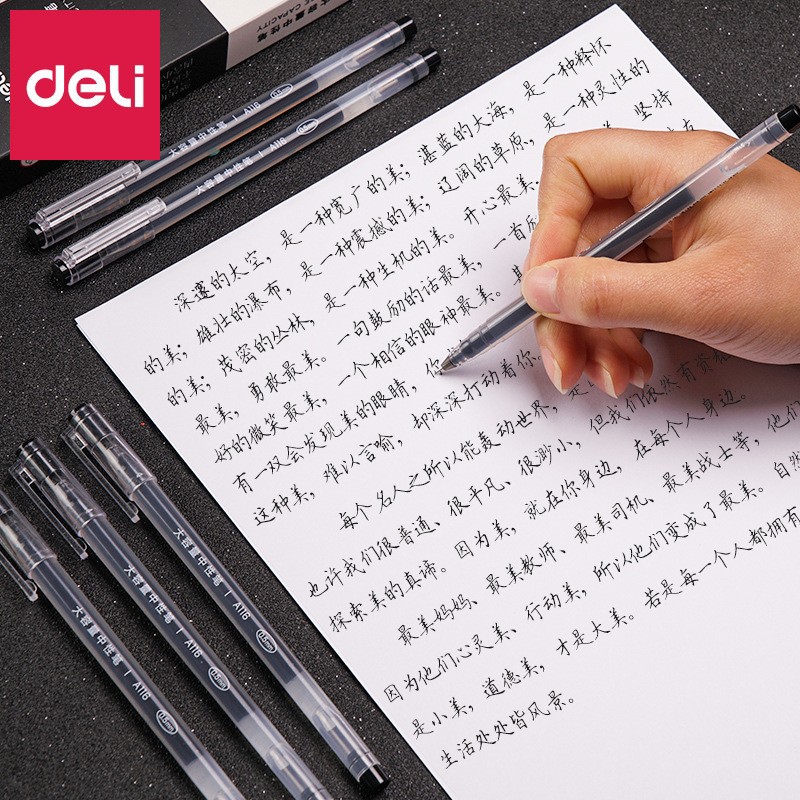 deli
大容量中性笔
E CAPACITY
大容量中性笔 | A116 0.5mm
大容量中性笔 | A116 0.5mm
深邃的天空，是一种宽广的美；湛蓝的大海，是一种释怀
的美；雄壮的瀑布，是一种震撼的美；辽阔的草原，是一种灵性的
的美；茂密的丛林，是一种生机的美。开心最美，美，坚持
最美，勇敢最美。一句鼓励的话最美，一首 友
好的微笑最美，一个相信的眼神最美。其
有一双会发现美的眼睛，你
这种美，难以言喻，却深深打动着你。
每个名人之所以能轰动世界，是
也许我们很普通、很平凡、很渺小，但我们依然有资格
探索美的真谛。因为美，就在你身边，在每个人身边。
最美妈妈、最美教师、最美司机、最美战士等，他们
因为他们心灵美、行动美，所以他们变成了最美。自然
是小美，道德美，才是大美。若是每一个人都拥有
生活处处皆风景。
大容量中性笔 | A116 0.5mm
大容量中性笔 | A116 0.5mm